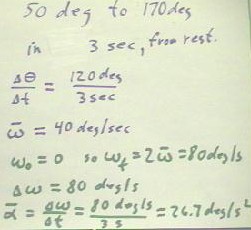 50 deg to 170deg
in 3 sec, from rest.
Δθ/Δt = 120deg/3sec
ω̄ = 40deg/sec
ω₀ = 0 so ω_f = 2ω̄ = 80deg/s
Δω = 80 deg/s
ᾱ = Δω/Δt = 80 deg/s/3s = 26.7deg/s²